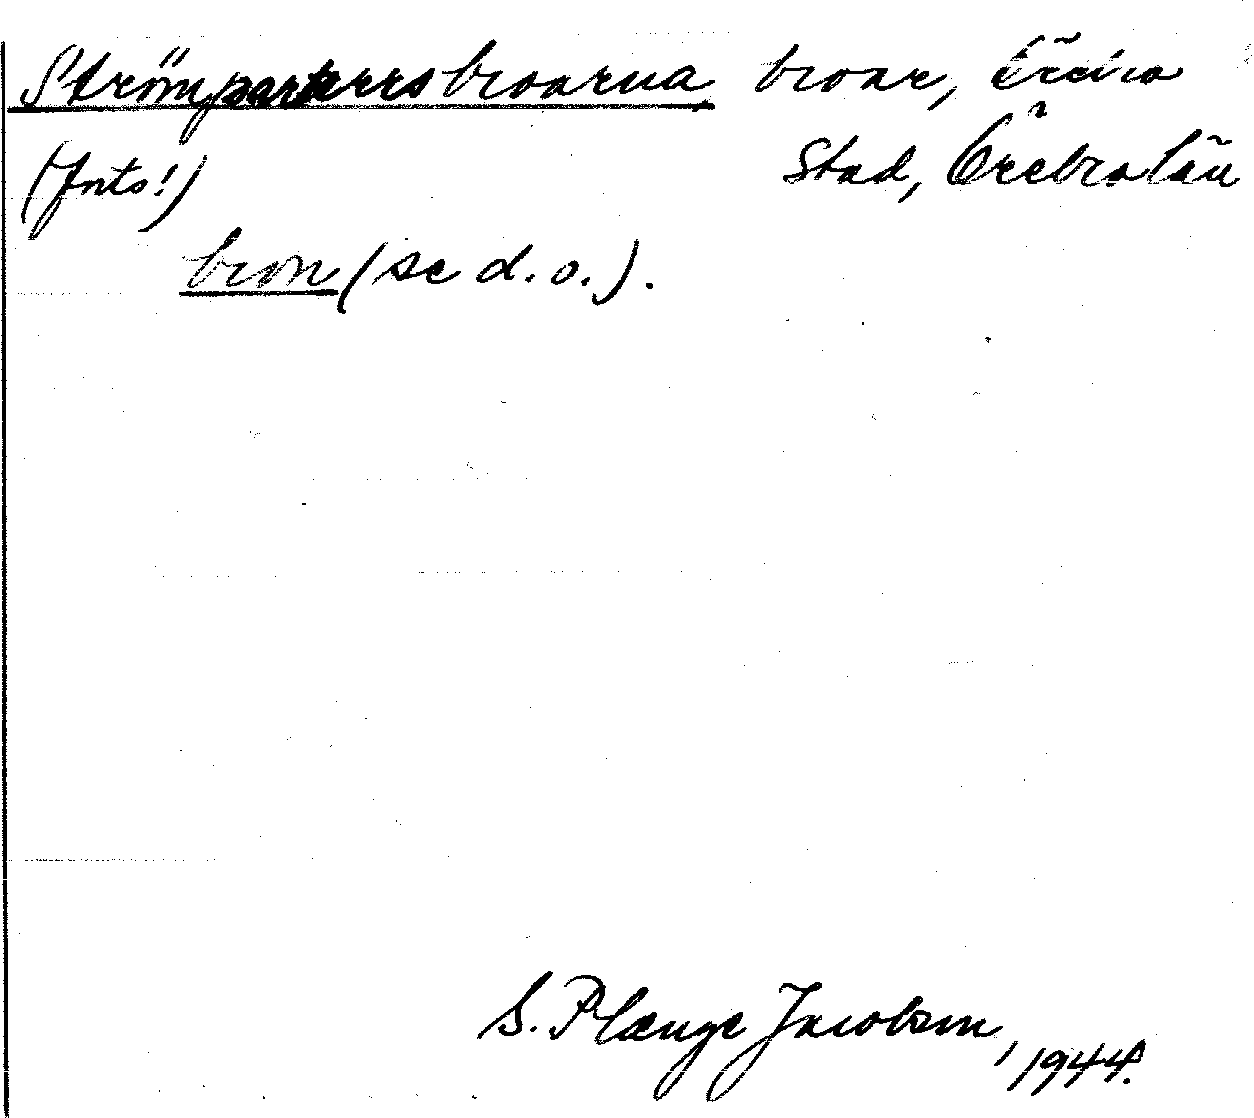 Strömparterrsbroarna, broar, Örebro
(forts!) Stad, Örebro län
bron (se d. o.).
S. Plænge Jacobson, 1944.